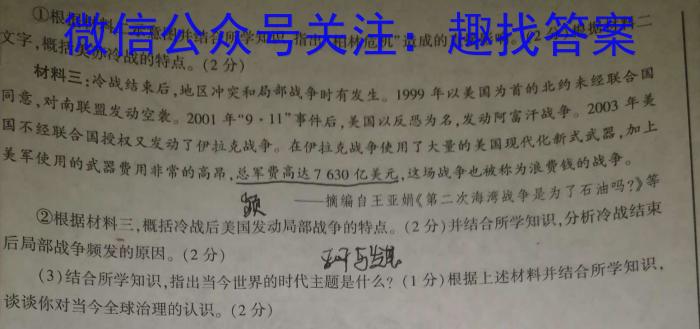 ①根据材料二示意图并结合所学知识,指出“柏林危机”造成的
微信公众号关注:趣找答案
(2分)根据材料二
文字,概括美苏冷战的特点。(2分)
材料三:冷战结束后,地区冲突和局部战争时有发生。1999年以美国为首的北约未经联合国
同意,对南联盟发动空袭。2001年“9·11”事件后,美国以反恐为名,发动阿富汗战争。2003年美
国不经联合国授权又发动了伊拉克战争。在伊拉克战争使用了大量的美国现代化新式武器,加上
美军使用的武器费用非常的高昂,总军费高达7 630亿美元,这场战争也被称为浪费钱的战争。
——摘编自王亚娟《第二次海湾战争是为了石油吗?》等
②根据材料三,概括冷战后美国发动局部战争的特点。(2分)并结合所学知识,分析冷战结束
后局部战争频发的原因。(2分)
和平与发展
(3)结合所学知识,指出当今世界的时代主题是什么?(1分)根据上述材料并结合所学知识,
谈谈你对当今全球治理的认识。(2分)